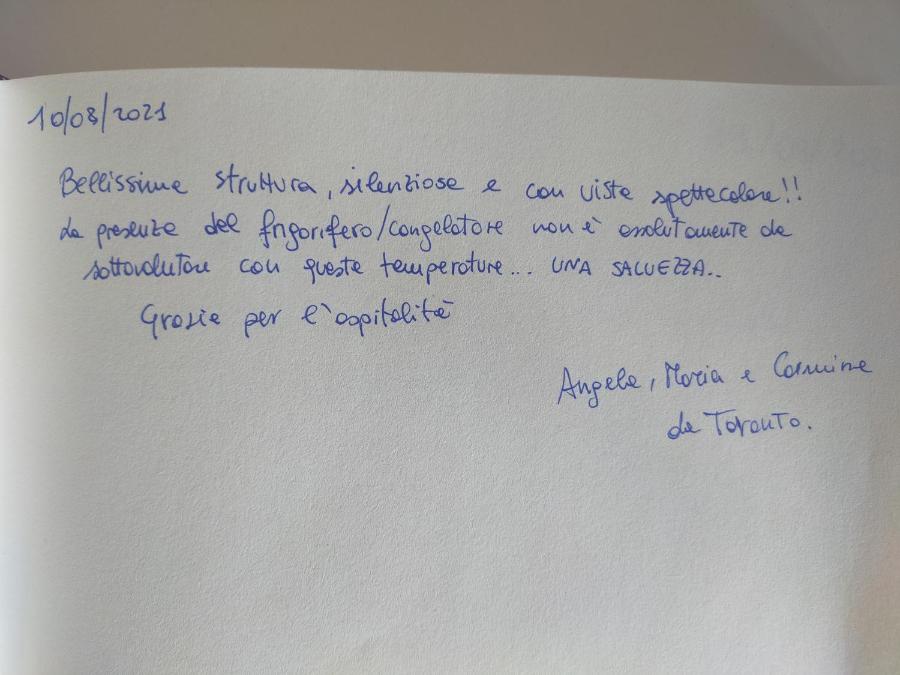 10/08/2021
Bellissima struttura, silenziosa e con vista spettacolare!!
La presenza del frigorifero/congelatore non è assolutamente da
sottovalutare con queste temperature... UNA SALVEZZA..
Grazie per l'ospitalità
Angela, Maria e Carmine
da Taranto.